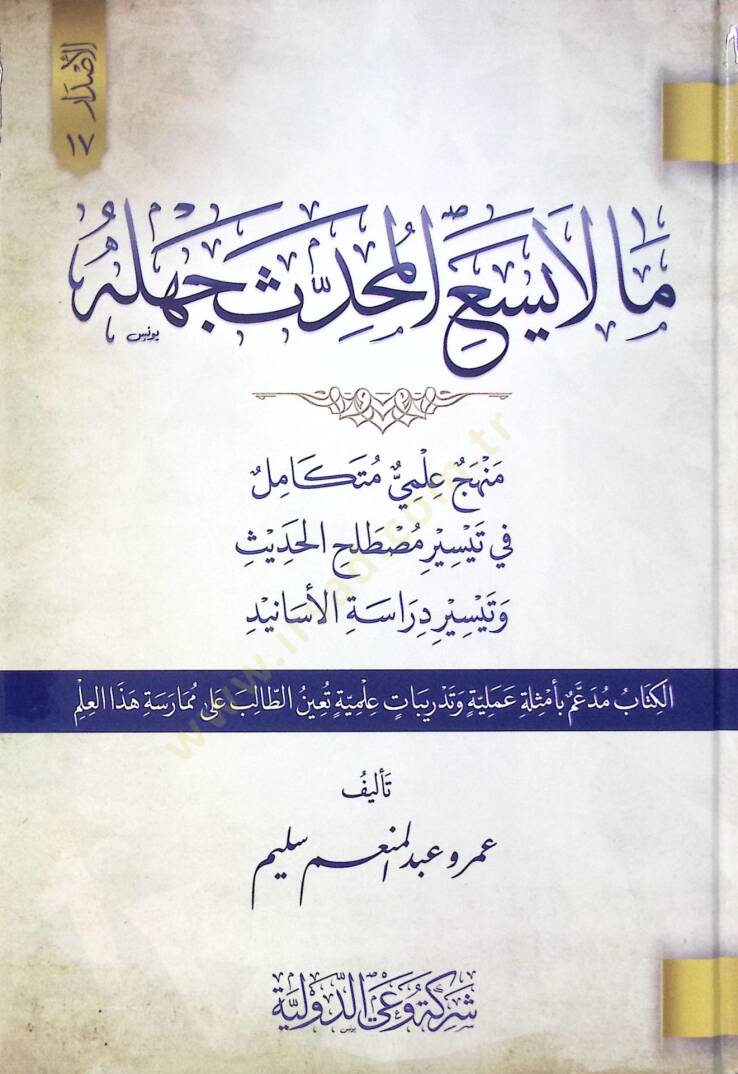 الإصدار ١٧
مَا لَا يَسَعُ المُحَدِّثَ جَهْلُهُ
يونس
مَنْهَجٌ عِلْمِيٌّ مُتَكَامِلٌ
فِي تَيْسِيْرِ مُصْطَلَحِ الحَدِيْثِ
وَتَيْسِيْرِ دِرَاسَةِ الأَسَانِيْدِ
الكِتَابُ مُدَعَّمٌ بِأَمْثِلَةٍ عَمَلِيَّةٍ وَتَدْرِيبَاتٍ عِلْمِيَّةٍ تُعِينُ الطَّالِبَ عَلَى مُمَارَسَةِ هَذَا العِلْمِ
تَأْلِيفُ
عمرو عبد المنعم سليم
شَرِكَةُ وَعْي الدَّوْلِيَّة